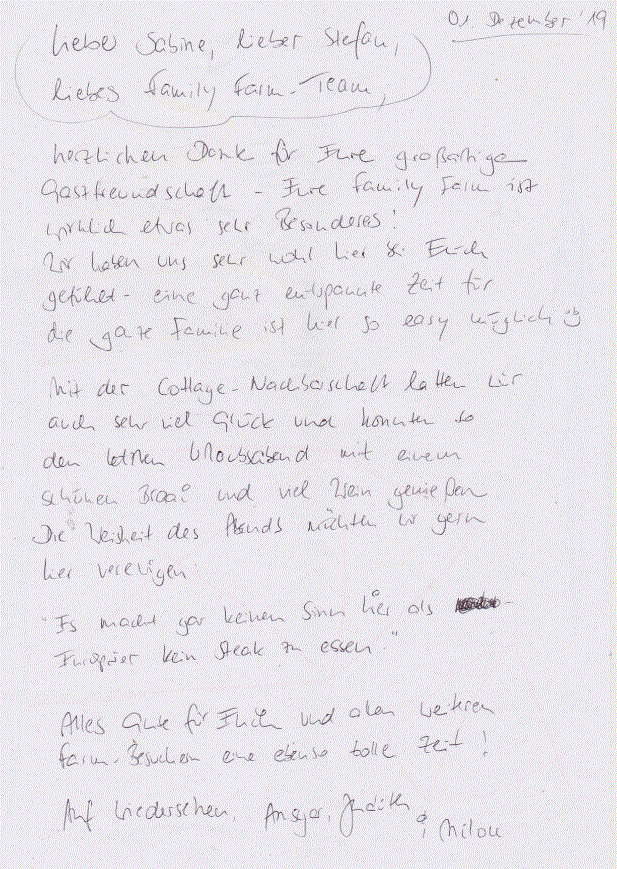 01 Dezember '19
Liebe Sabine, lieber Stefan,
liebes Family Farm-Team,
herzlichen Dank für Eure großartige
Gastfreundschaft - Eure Family Farm ist
wirklich etwas sehr Besonderes!
Wir haben uns sehr wohl hier bei Euch
gefühlt - eine ganz entspannte Zeit für
die ganze Familie ist hier so easy möglich
Mit der Cottage-Nachbarschaft hatten wir
auch sehr viel Glück und konnten so
den letzten Urlaubsabend mit einem
schönen Braai und viel Wein genießen
Die Weisheit des Abends möchten wir gern
hier verewigen:
"Es macht gar keinen Sinn hier als
Europäer kein Steak zu essen."
Alles Gute für Euch und allen weiteren
Farm-Besuchern eine ebenso tolle Zeit!
Auf Wiedersehen, Ansgar, Judith
& Milou